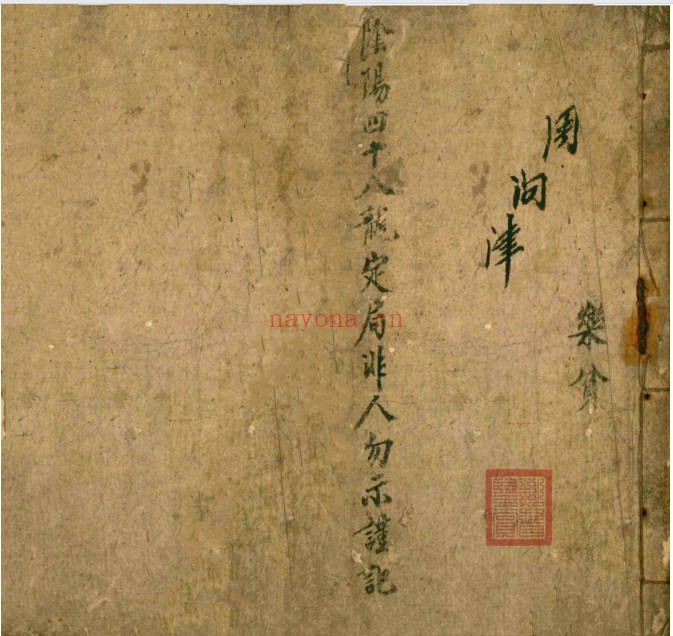 樂貧
周问津
陰陽四十八龍定局非人勿示謹記
nayona.cn